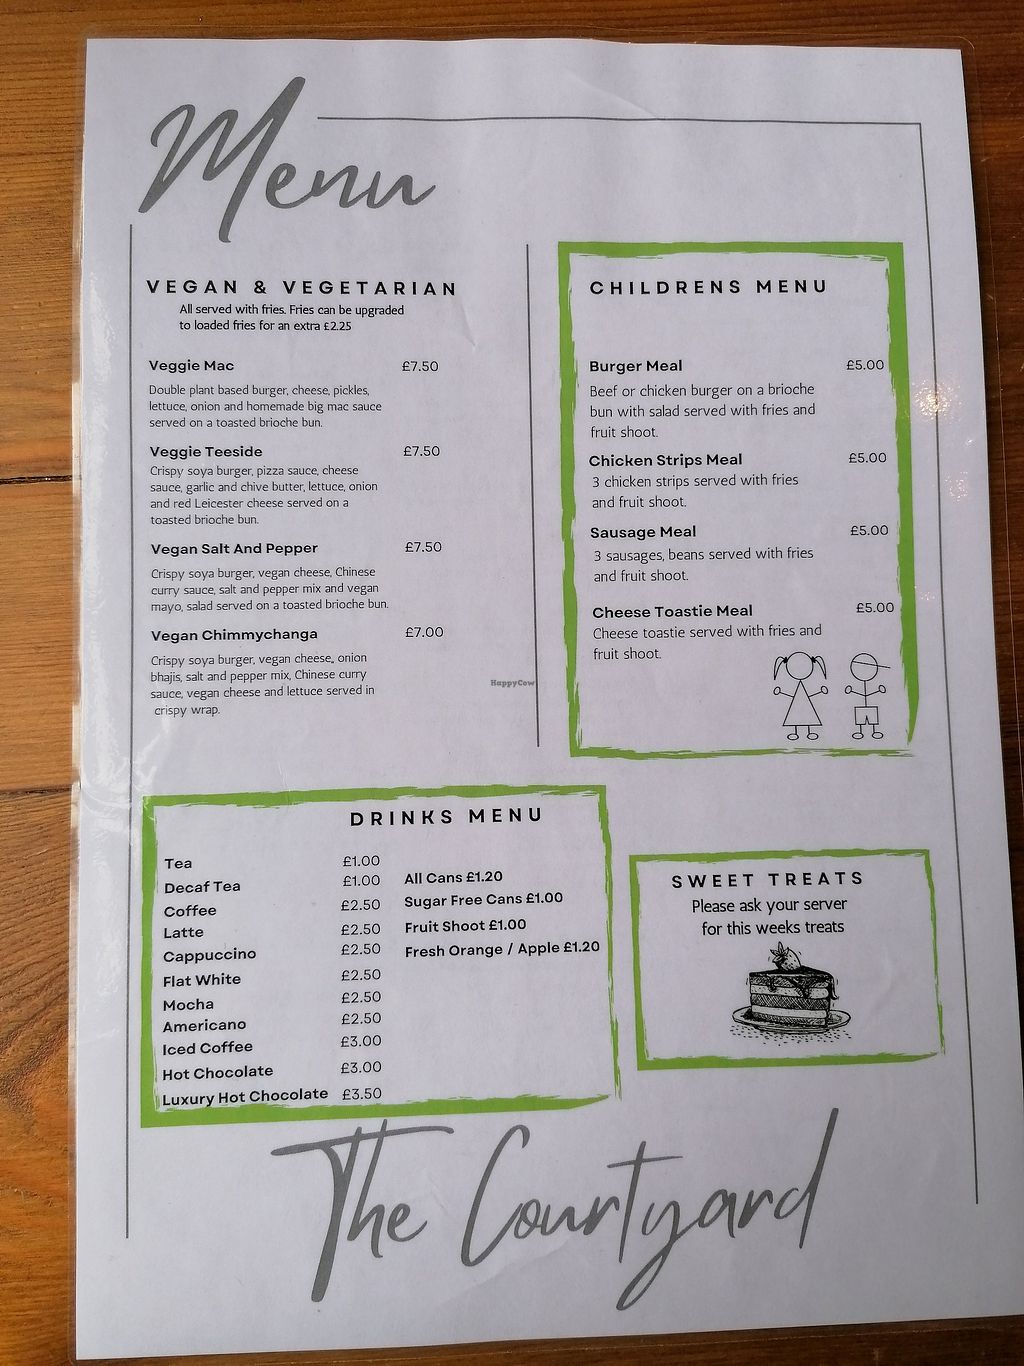 Menu
VEGAN & VEGETARIAN
All served with fries. Fries can be upgraded
to loaded fries for an extra £2.25
Veggie Mac £7.50
Double plant based burger, cheese, pickles,
lettuce, onion and homemade big mac sauce
served on a toasted brioche bun.
Veggie Teeside £7.50
Crispy soya burger, pizza sauce, cheese
sauce, garlic and chive butter, lettuce, onion
and red Leicester cheese served on a
toasted brioche bun.
Vegan Salt And Pepper £7.50
Crispy soya burger, vegan cheese, Chinese
curry sauce, salt and pepper mix and vegan
mayo, salad served on a toasted brioche bun.
Vegan Chimmychanga £7.00
Crispy soya burger, vegan cheese,, onion
bhajis, salt and pepper mix, Chinese curry
sauce, vegan cheese and lettuce served in
crispy wrap.
HappyCow
CHILDRENS MENU
Burger Meal £5.00
Beef or chicken burger on a brioche
bun with salad served with fries and
fruit shoot.
Chicken Strips Meal £5.00
3 chicken strips served with fries
and fruit shoot.
Sausage Meal £5.00
3 sausages, beans served with fries
and fruit shoot.
Cheese Toastie Meal £5.00
Cheese toastie served with fries and
fruit shoot.
DRINKS MENU
Tea £1.00
Decaf Tea £1.00
Coffee £2.50
Latte £2.50
Cappuccino £2.50
Flat White £2.50
Mocha £2.50
Americano £2.50
Iced Coffee £3.00
Hot Chocolate £3.00
Luxury Hot Chocolate £3.50
All Cans £1.20
Sugar Free Cans £1.00
Fruit Shoot £1.00
Fresh Orange / Apple £1.20
SWEET TREATS
Please ask your server
for this weeks treats
The Courtyard